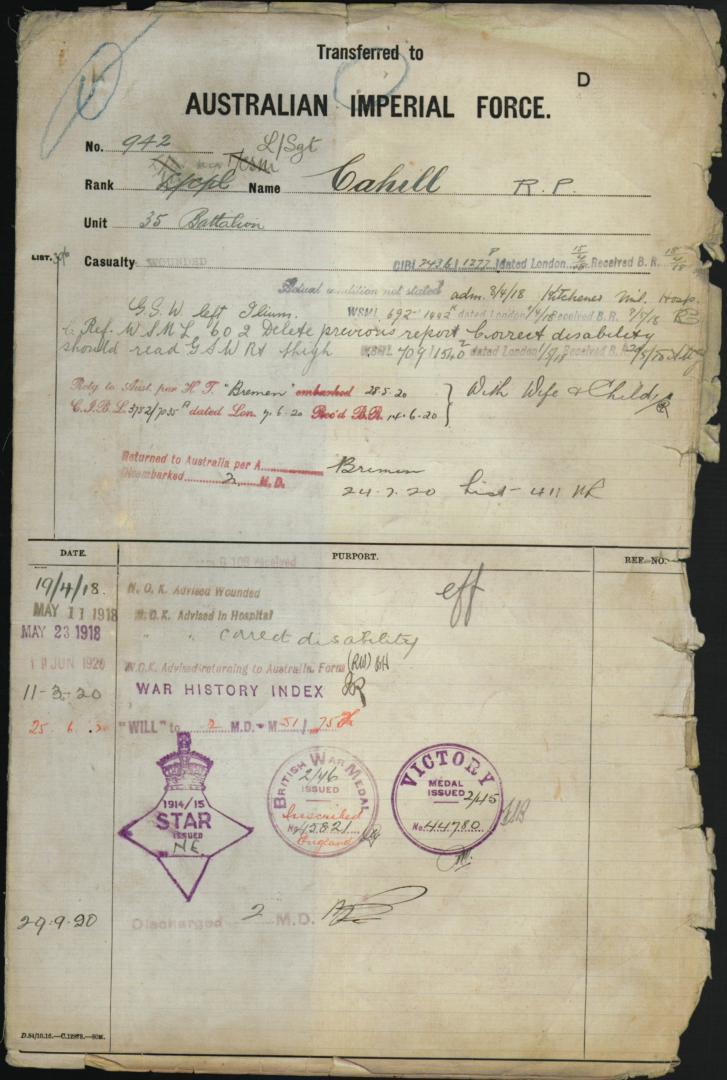 Transferred to
D
AUSTRALIAN IMPERIAL FORCE.
No. 942 L/Sgt
Rank L/cpl Name Cahill R. P.
Unit 35 Battalion
LIST. Casualty WOUNDED CIBL 2436/1277 dated London 15/4/18 Received B. R. 15/4/18
Actual condition not stated adm. 3/4/18 Kitchener Mil. Hosp.
G.S.W left Ilium. WSML 692 dated London Received B. R. 9/5/18
Ref. WSML 602 Delete previous report Correct disability
should read GSW Rt thigh WSML 709/1540 dated London Received B. R.
Retg to Aust. per H T. "Bremen" embarked 28.5.20 } With Wife & Child
C.I.B L. 3752/7035 dated Lon. 7.6.20 Rec'd B.R. 14.6.20
Returned to Australia per A Bremen
Disembarked 2 M. D. 24.7.20 List 411
DATE. PURPORT. REF. NO.
B 103 received
19/4/18. N. O. K. Advised Wounded eff
MAY 11 1918 N.O.K. Advised in Hospital
MAY 23 1918 " " Correct disability
JUN 1920 N.O.K. Advised returning to Australia. Form (RW)
11-3-20 WAR HISTORY INDEX
25.6.20 "WILL" to 2 M.D. M 51/75
1914/15
STAR
ISSUED
NE
BRITISH WAR MEDAL
2/46
ISSUED
Inscribed
No 45821
England
VICTORY
MEDAL
ISSUED 2/45
No. 44780
29.9.20 Discharged 2 M.D.
D.84/10.16.—C.12878.—50M.